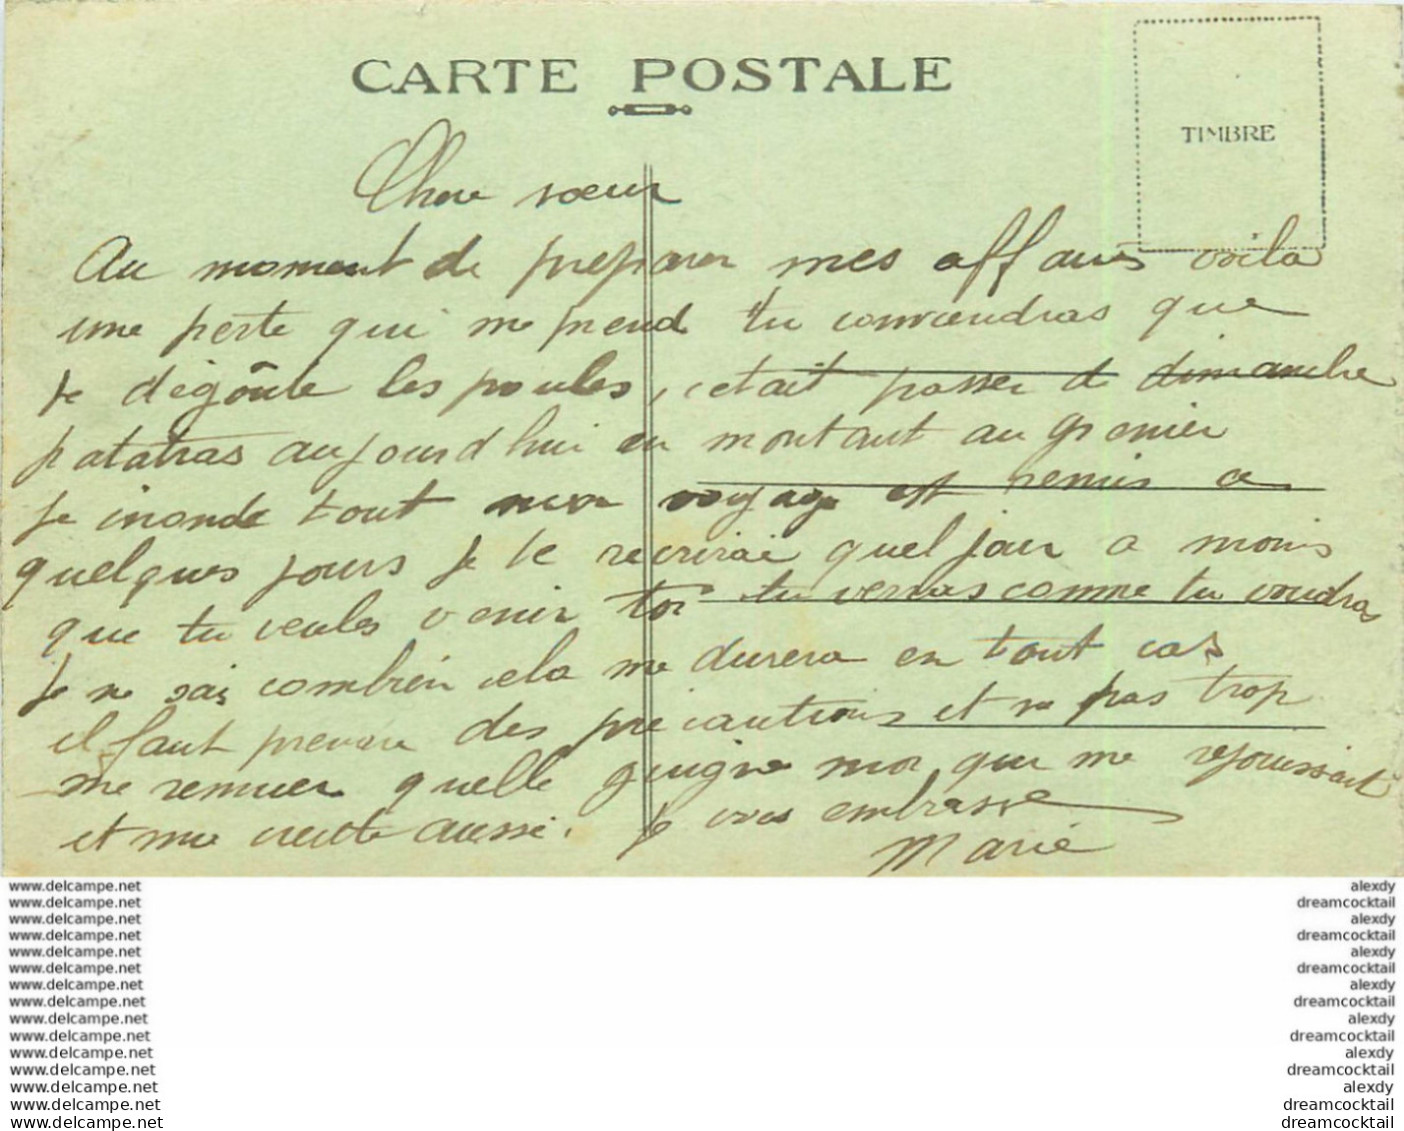 CARTE POSTALE
TIMBRE
Chere sœur
Au moment de preparer mes affaires voila
une perte qui me prend tu conviendras que
je dégôute les poules, cetait passer de dimanche
patatras aujourd'hui en montant au grenier
je inonde tout mon voyage est remis a
quelques jours je te recrirai quel jour a moins
que tu veules venir toi tu verras comme tu voudras
je ne sais combien cela me durera en tout cas
il faut prendre des precautions et ne pas trop
me remuer quelle guigne moi qui me rejouissait
et me
aussi. Je vous embrasse
Marie
www.delcampe.net alexdy
www.delcampe.net dreamcocktail
www.delcampe.net alexdy
www.delcampe.net dreamcocktail
www.delcampe.net alexdy
www.delcampe.net dreamcocktail
www.delcampe.net alexdy
www.delcampe.net dreamcocktail
www.delcampe.net alexdy
www.delcampe.net dreamcocktail
www.delcampe.net alexdy
www.delcampe.net dreamcocktail
www.delcampe.net alexdy
www.delcampe.net dreamcocktail
www.delcampe.net dreamcocktail